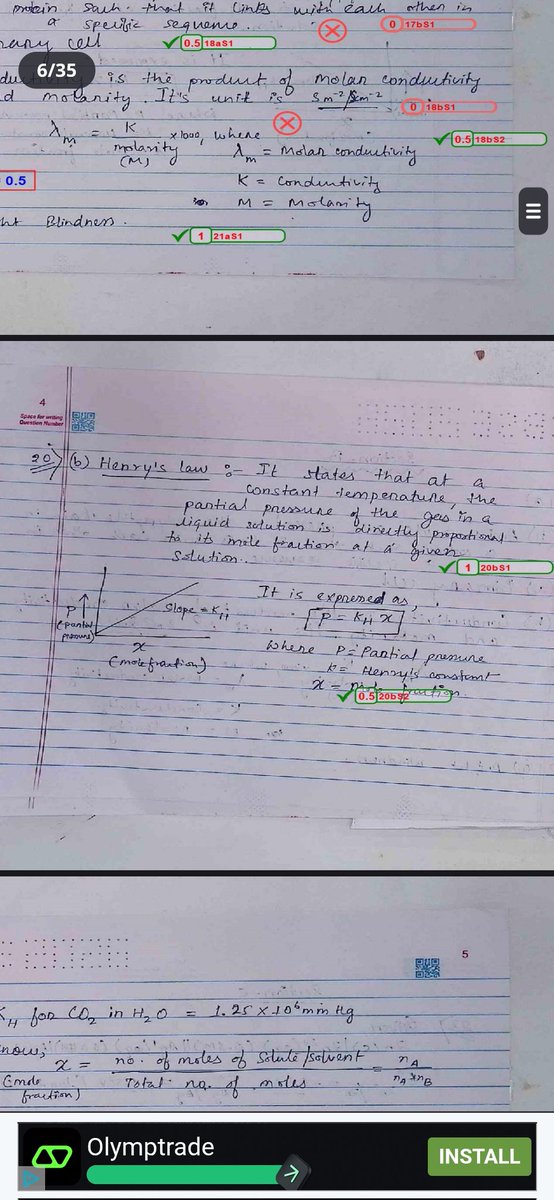 protein such that it links with each other in
a specific sequence.
0 17bS1
nary cell
0.5 18aS1
6/35
is the product of molar conductivity
d molarity. It's unit is
0 18bS1
λm = K / molarity (M) x 1000, where
0.5 18bS2
λm = Molar conductivity
= 0.5
K = Conductivity
M = Molarity
ht Blindness.
1 21aS1
4
Space for writing
Question Number
20) (b) Henry's law :- It states that at a
constant temperature, the
partial pressure of the gas in a
liquid solution is directly proportional
to its mole fraction at a given
solution.
1 20bS1
It is expressed as,
Slope = KH
P = KH x
P
(partial
pressure)
where P = Partial pressure
x
(mole fraction)
K = Henry's constant
x = mole fraction.
0.5 20bS2
5
KH for CO2 in H2O = 1.25 x 10^6 mm Hg
know,
x = no. of moles of Solute/solvent / Total no. of moles = nA / nA+nB
(mole
fraction)
Olymptrade
INSTALL